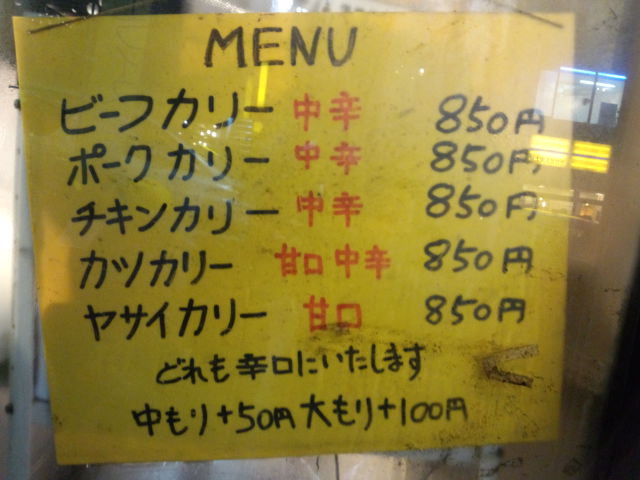 MENU
ビーフカリー 中辛 850円
ポークカリー 中辛 850円
チキンカリー 中辛 850円
カツカリー 甘口 中辛 850円
ヤサイカリー 甘口 850円
どれも辛口にいたします
中もり+50円 大もり+100円